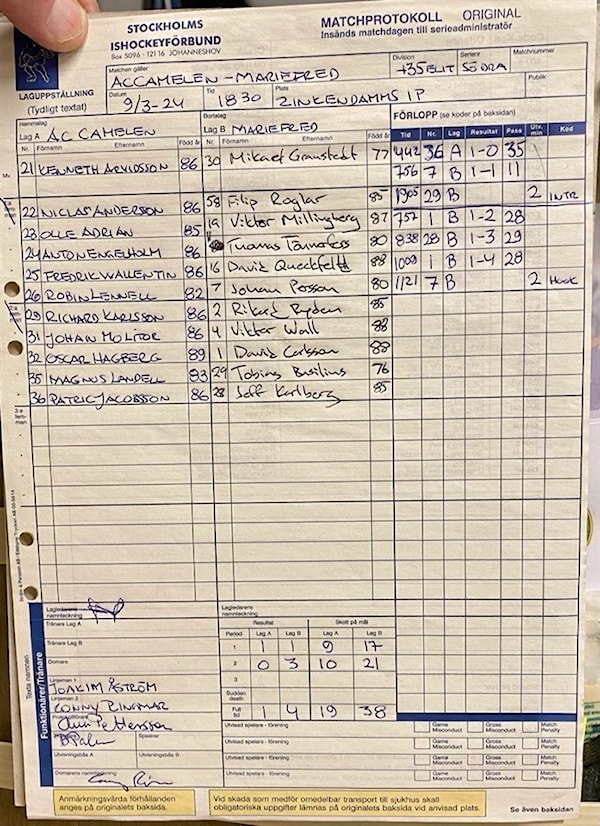 STOCKHOLMS
ISHOCKEYFÖRBUND
Box 5096 • 121 16 JOHANNESHOV
MATCHPROTOKOLL ORIGINAL
Insänds matchdagen till serieadministratör
LAGUPPSTÄLLNING
(Tydligt textat)
Matchen gäller
AC CAMELEN - MARIEFRED
Division
+35 ELIT
Serienr
SÖDRA
Matchnummer
Datum
9/3-24
Tid
1830
Plats
ZINKENDAMMS IP
Publik
Hemmalag
Lag A AC CAMELEN
Bortalag
Lag B MARIEFRED
FÖRLOPP (se koder på baksidan)
Nr. Förnamn Efternamn Född år Nr. Förnamn Efternamn Född år Tid Nr. Lag Resultat Pass Utv. min Kod
Mv.
21 KENNETH ARVIDSSON 86 30 Mikael Granstedt 77 442 36 A 1-0 35
756 7 B 1-1 11
22 NICLAS ANDERSON 86 58 Filip Roglar 85 1905 29 B 2 INTR
23 OLLE ADRIAN 85 19 Viktor Millingberg 87 757 1 B 1-2 28
24 ANTON ENGELHOLM 86 11 Tuomas 80 838 28 B 1-3 29
25 FREDRIK WALLENTIN 86 16 David Queckfeldt 88 1009 1 B 1-4 28
26 ROBIN LENNELL 82 7 Johan Persson 80 1121 7 B 2 Hook
29 RICHARD KARLSSON 86 2 Rikard Ryden 85
31 JOHAN MOLITOR 86 4 Viktor Wall 88
32 OSCAR HAGBERG 89 1 David Carlsson 88
35 MAGNUS LANDELL 83 29 Tobias Basilius 76
36 PATRIC JACOBSSON 86 28 Joff Karlberg 85
3:e fem-man
Lagledarens namnteckning
Lagledarens namnteckning
Funktionärer/Tränare
Texta namnen
Tränare Lag A
Tränare Lag B
Domare
Linjeman 1
JOAKIM ÅSTRÖM
Linjeman 2
CONNY RINGMAR
Protokollförare
Pettersson
Speaker
Utvisningsbås A
Utvisningsbås B
Domarens namnteckning
Resultat Skott på mål
Period Lag A Lag B Lag A Lag B
1 1 1 9 17
2 0 3 10 21
3
Sudden death
Full tid 1 4 19 38
Utvisad spelare - förening Game Misconduct Gross Misconduct Match Penalty
Utvisad spelare - förening Game Misconduct Gross Misconduct Match Penalty
Utvisad spelare - förening Game Misconduct Gross Misconduct Match Penalty
Utvisad spelare - förening Game Misconduct Gross Misconduct Match Penalty
Anmärkningsvärda förhållanden
anges på originalets baksida.
Vid skada som medför omedelbar transport till sjukhus skall
obligatoriska uppgifter lämnas på originalets baksida vid anvisad plats.
Se även baksidan